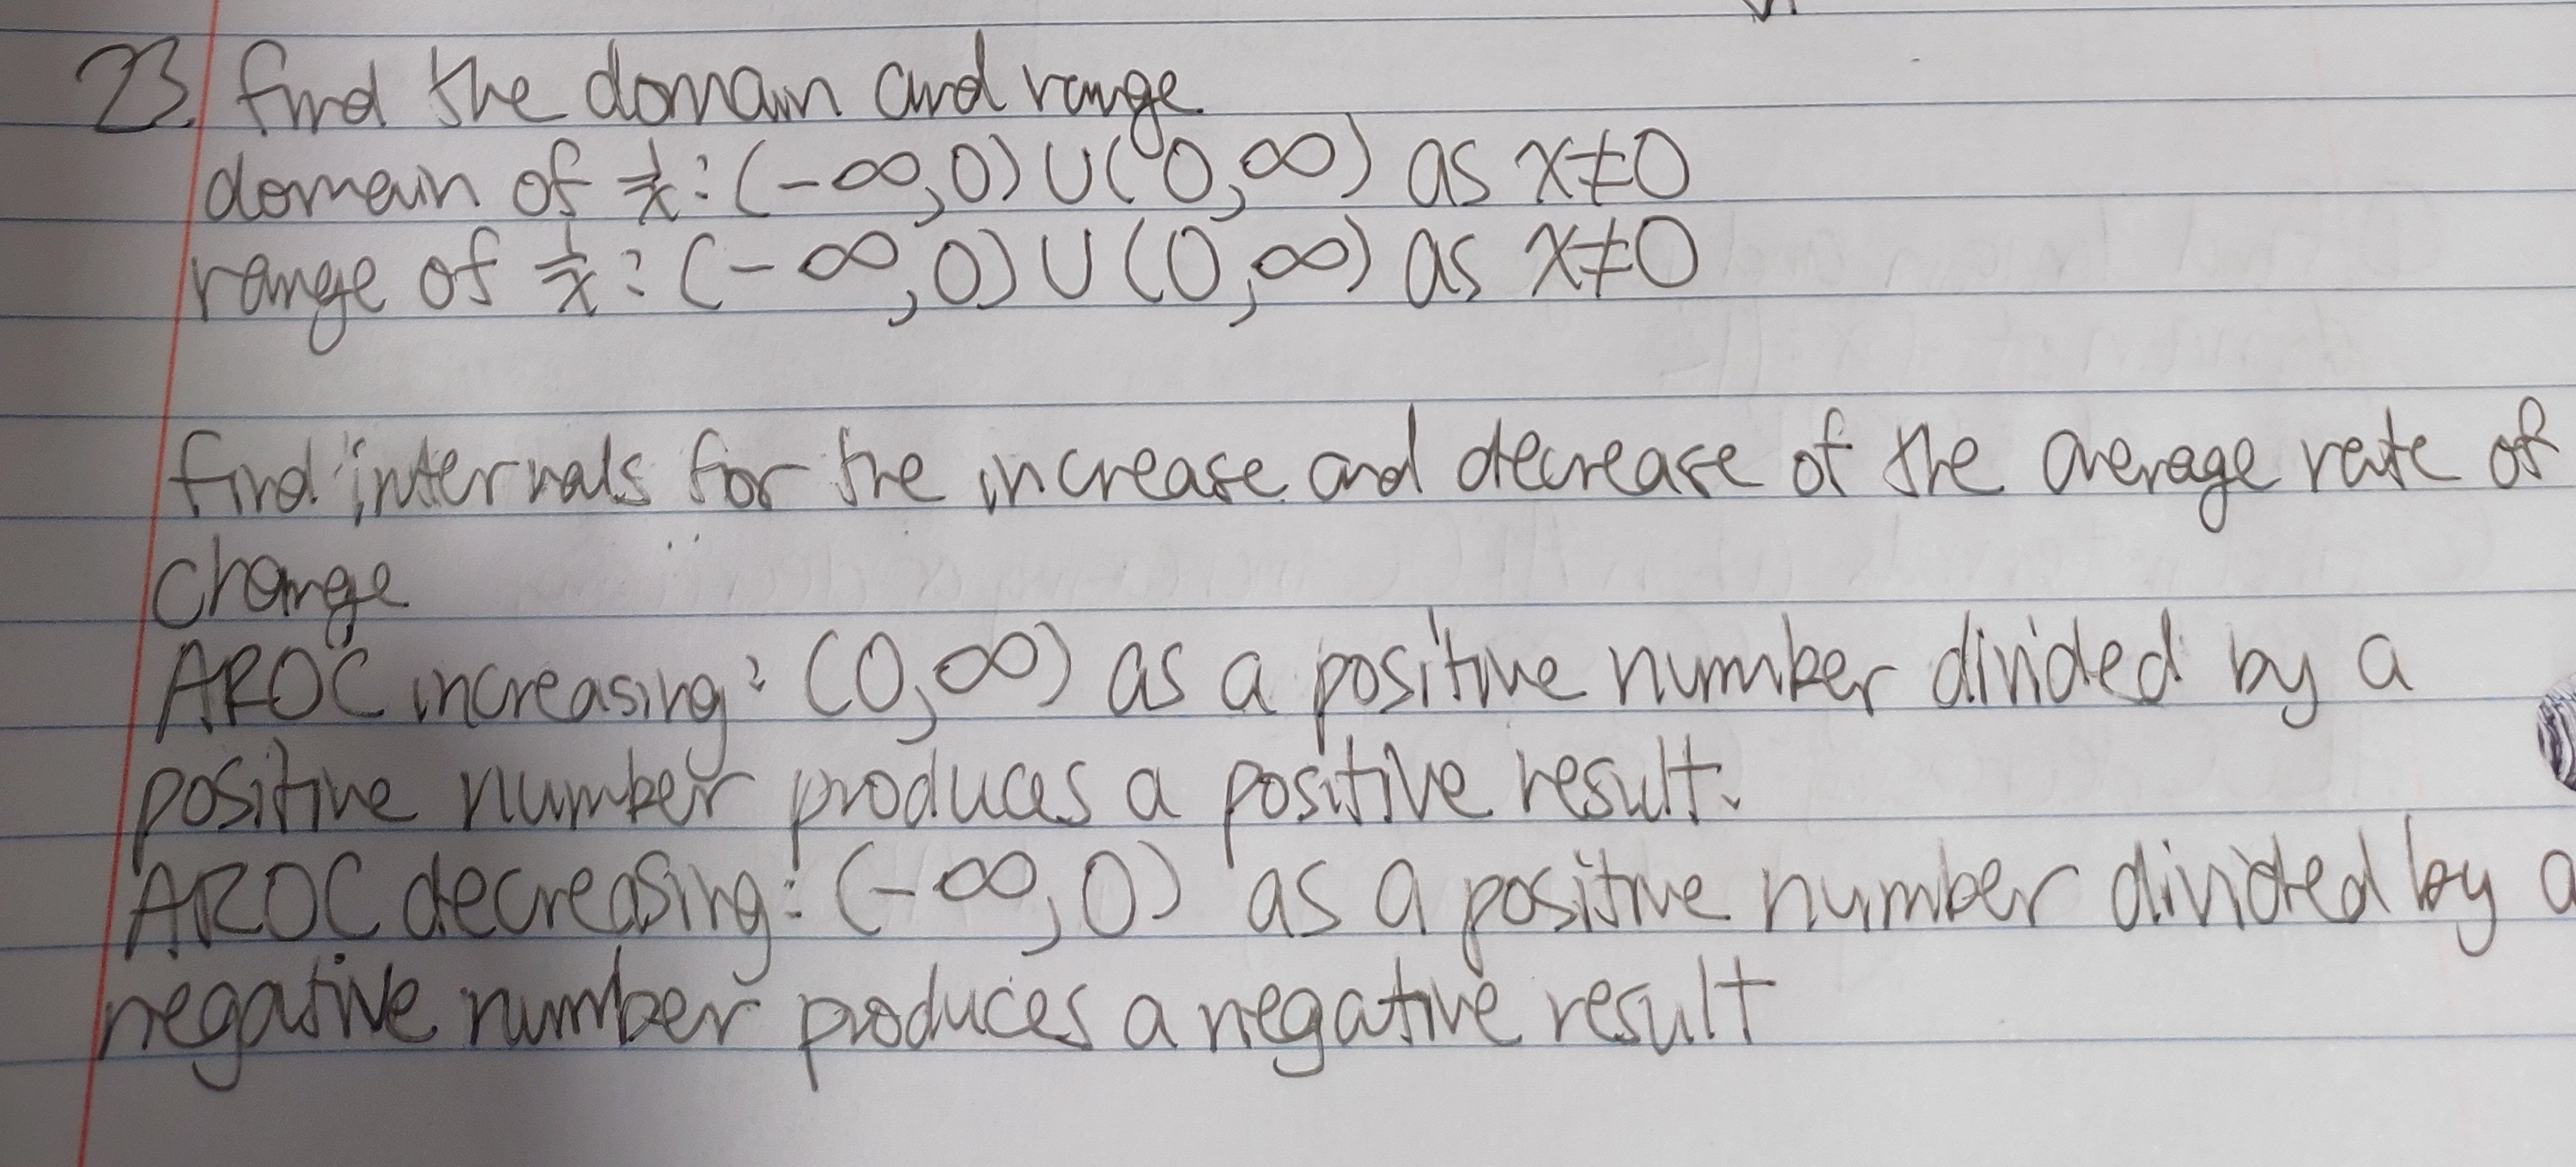 23. find the domain and range
domain of 1/x: (-∞,0) ∪ (0,∞) as x≠0
range of 1/x: (-∞,0) ∪ (0,∞) as x≠0
find intervals for the increase and decrease of the average rate of
change
AROC increasing: (0,∞) as a positive number divided by a
positive number produces a positive result.
AROC decreasing: (-∞,0) as a positive number divided by a
negative number produces a negative result